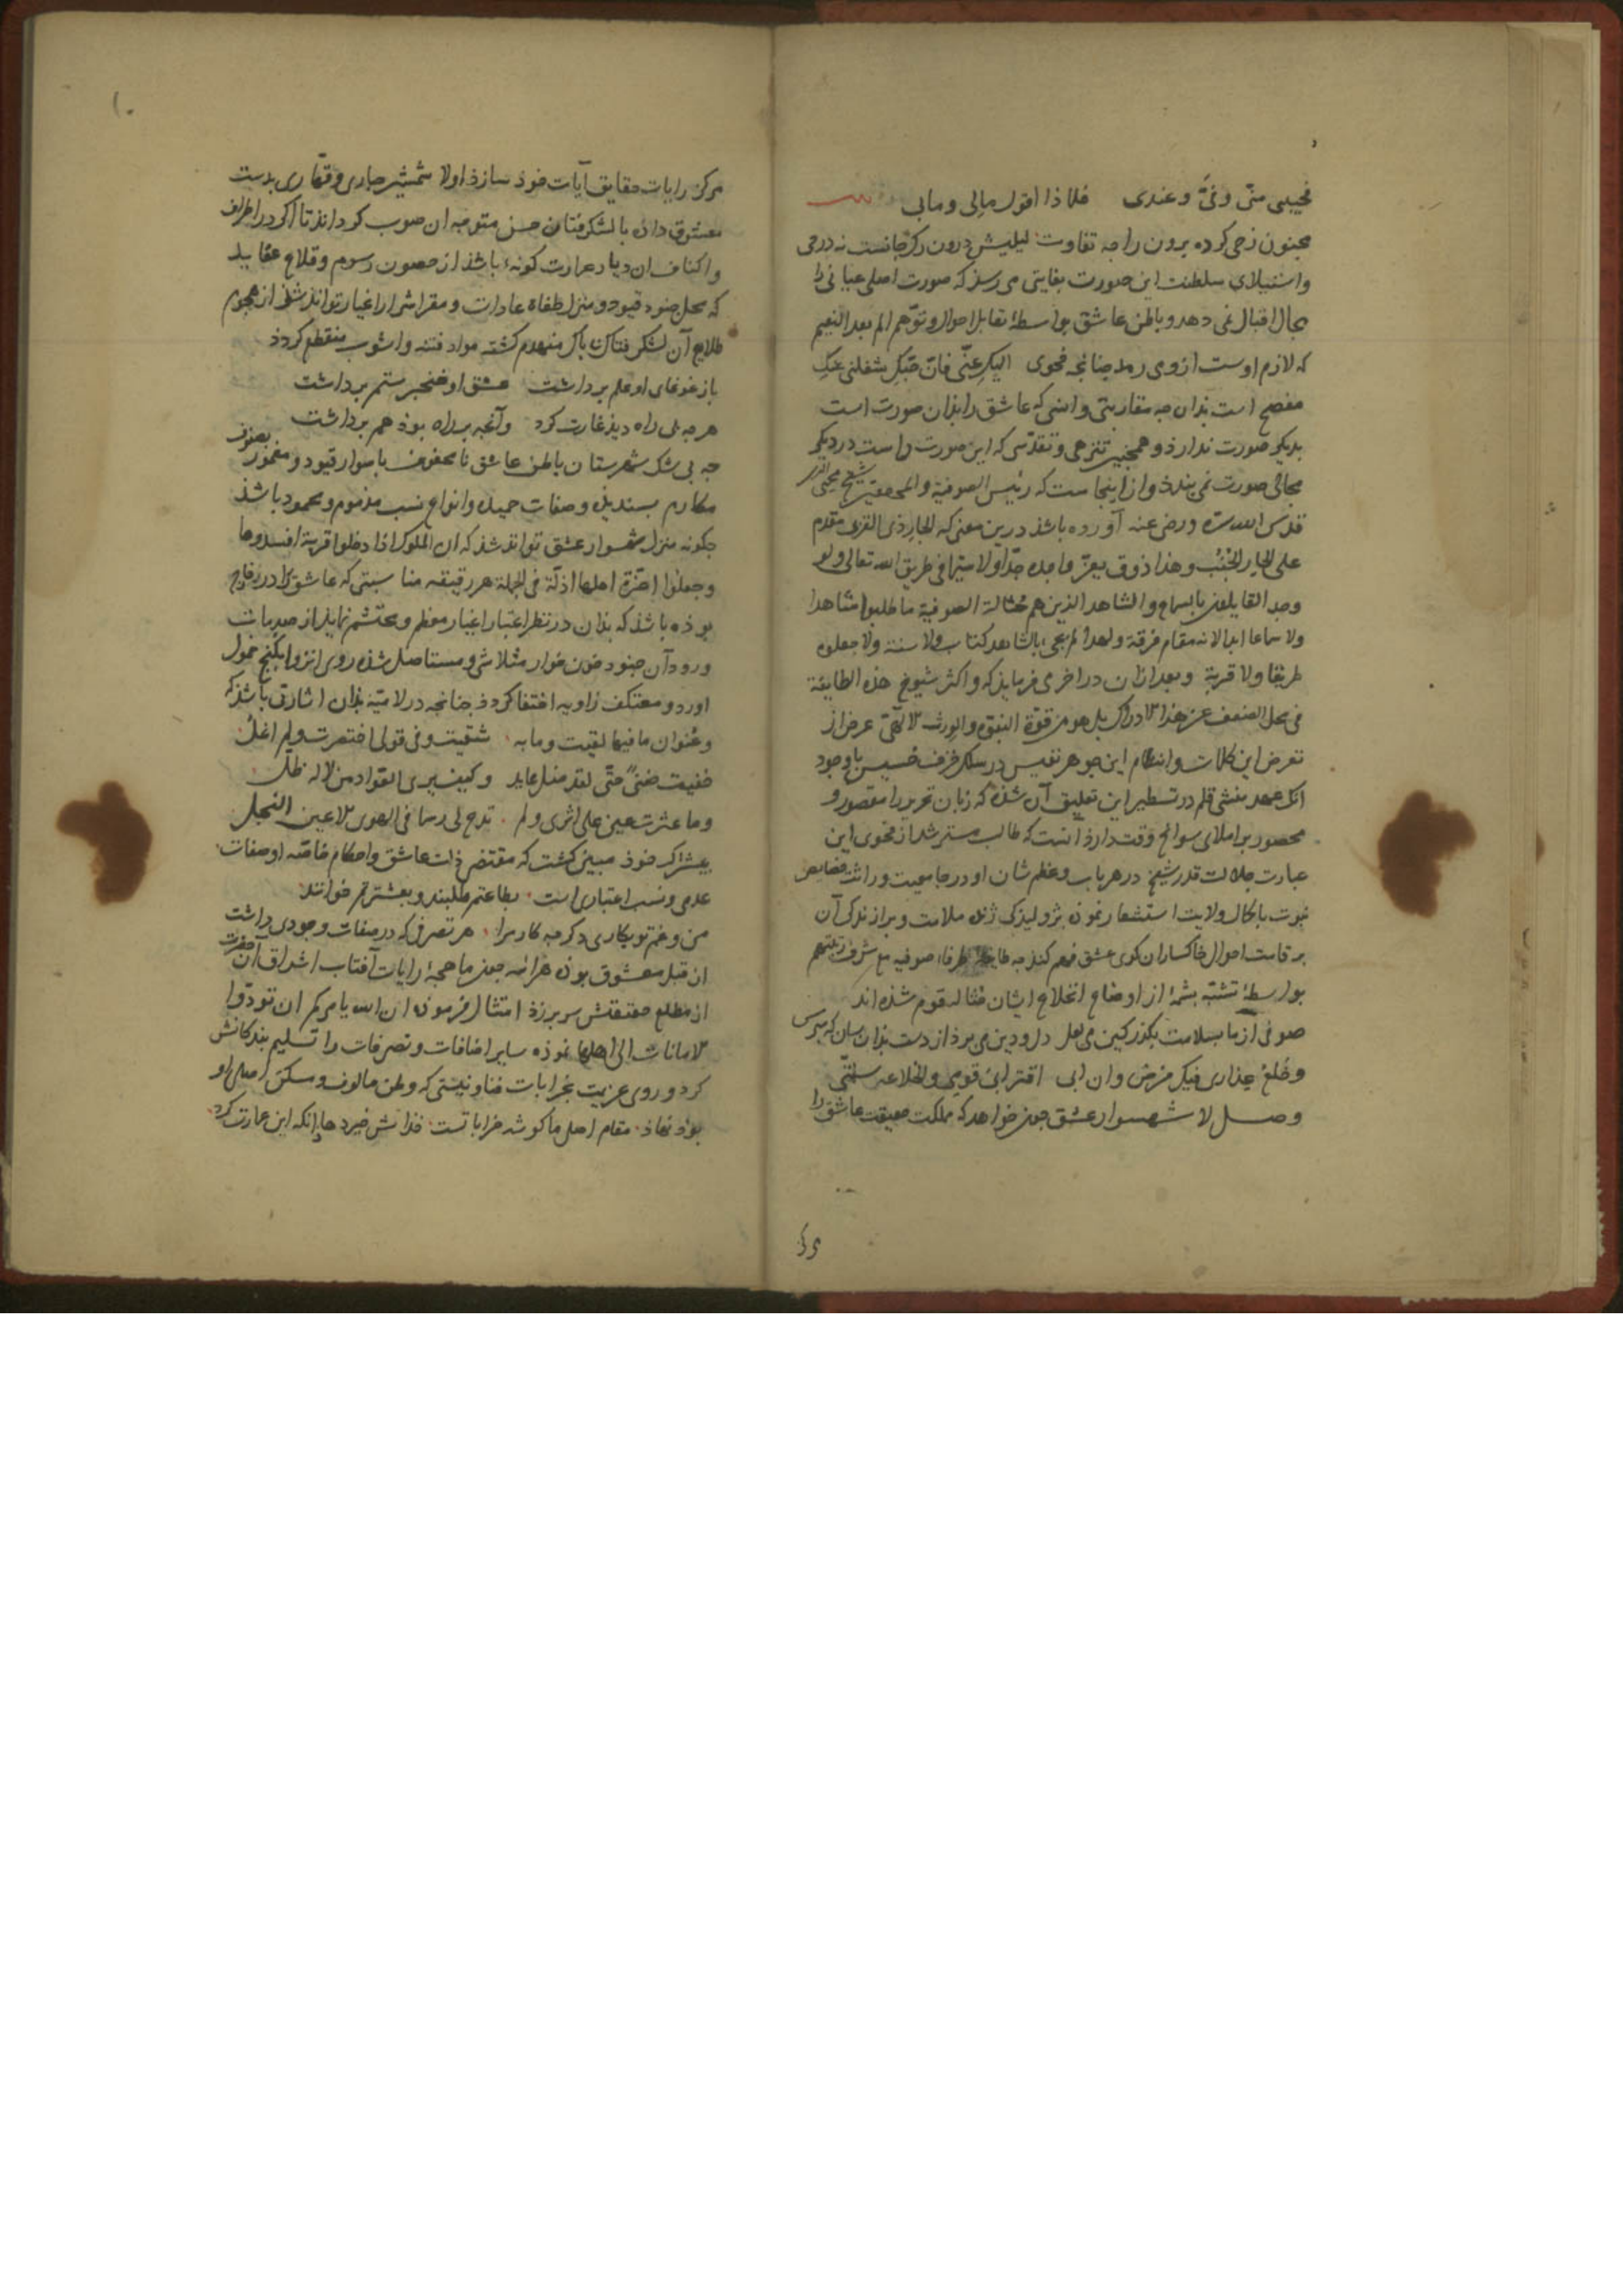 فحبیبی منّی وفیّ وعندی فلماذا اقول مالی ومابی
مجنون ز حی کرده برون را چه تفاوت لیلیش درون رگ جانست نه در حی
واستیلای سلطنت این صورت بغایتی می رسد که صورت اصلی عیانی را
مجال اقبال نمی دهد و باطن عاشق بواسطهٔ تقابل احوال و توهّم الم بعد النعیم
که لازم اوست ازوی رمد چنانچه فحوی الیک عنّی فانّ حبّک شغلنی عنک
مفصح است بذان چه مقاربتی وانسی که عاشق را بذان صورت است
بدیگر صورت ندارذ و همچنین تنزهی و تقدّسی که این صورت راست در دیگر
مجالی صورت نمی بندذ واز اینجاست که رئیس الصوفیة والمحققین شیخ محیی الدین
قدس الله سره ورضی عنه آورده باشذ درین معنی که الجار ذی القربی مقدم
علی الجار الجُنُب وهذا ذوق یعزّ واجده جدّا ولا سیّما فی طریق الله تعالی ولو
وجد القایلون بالسماع والشاهد الذین هم حُثالة الصوفیة ما طلبوا شاهدا
ولا سماعا ابدا لانه مقام فرقة ولهذا لم یجی بالشاهد کتاب ولا سنة ولا جعلوه
طریقا ولا قربة وبعد ازان در اخری فرمایذ که واکثر شیوخ هذه الطایفة
فی محل الضعف عن هذا الادراک بل هو من قوّة النبوّه والورث الالهی غرض از
تعرض این کلمات وانتظام این جوهر نفیس در سلک خزف خسیس باوجود
انک عهد منشی قلم در تسطیر این تعلیق آن شذه که زبان تحریر را مقصور و
محصور بر املای سوانح وقت دارذ انست که طالب مسترشد از فحوی این
عبارت جلالت قدر شیخ در هر باب وعظم شان او در جامعیت وراثت خصایص
نبوت باکمال ولایت استشعار نموذه ژولیذکی ژنده ملامت وبرازندکی آن
بر قامت احوال خاکساران کوی عشق فهم کند چه طایفه ظرفاء صوفیه مع شرف رتبتهم
بواسطهٔ تشبّه بشمهٔ از اوضاع انخلاع ایشان حُثاله قوم شذه اند
صوفی از ما بسلامت بگذر کین می لعل دل ودین می برد از دست بذان سان که مپرس
وخلع عذاری فیک فرضی وان ابی اقترابی قومی والخلاعه سنّتی
وصل لا شهسوار عشق چون خواهد که مملکت حقیقت عاشق را
مرکز رایات حقایق آیات خوذ سازذ اولا شمشیر جباری وقهّاری بدست
معشوق داذه با لشکر فتان حسن متوجه ان صوب کرداند تا اکر در اطراف
واکناف ان دیار عمارت کونهٔ باشذ از حصون رسوم وقلاع عقاید
که محل جنود قیود ومنزل طغاة عادات ومقر اشرار اغیار تواند شذ از هجوم
طلایع آن لشکر فتاک ناپاک منهدم کشته مواد فتنه واشوب منقطع کردذ
باز غوغای او علم برداشت عشق او خنجر ستم برداشت
هرچه بی راه دیذ غارت کرد وآنچه براه بوذ هم برداشت
چه بی شک شهرستان باطن عاشق تا محفوف باسوار قیود ومغمور بصنوف
مکارم پسندیده وصفات حمیده وانواع نسب مذموم ومحمود باشذ
چکونه منزل شهسوار عشق تواند شذ که ان الملوک اذا دخلوا قریة افسدوها
وجعلوا اعزّة اهلها اذلّة فی الجملة هر رقیقه مناسبتی که عاشق را در
بوذه باشذ که بذان در نظر اعتبار اغیار معظم ومحتشم نمایذ از صدمات
ورود آن جنود خون خوار متلاشی ومستاصل شذه روی انزوا بکنج خمول
اورد ومعتکف زاویه اختفا کردذ چنانچه در لامیّه بذان اشارتی باشذ که
وعُنوان ما فیها لقیت وما به شقیت وفی قولی اختصرت ولم اغلُ
خفیت ضنیً حتّی لقد ضل عایدی وکیف یری العواد من لا له ظل
وما عثرت عین علی اثری ولم تدع لی رسما فی الهوی الاعین النجل
عدمی ونسب اعتباری است بطاعتم طلبند وبعشرتم خوانند
من وغم تو بکار دکر چه کار مرا هر تصرفی که در صفات وجودی داشت
از قبل معشوق بوذه هراینه چون ماهچهٔ رایات آفتاب اشراق آن حضرت
از مطلع حقیقتش سر برزذ امتثال فرموده ان الله یامرکم ان تودّوا
الامانات الی اهلها نموذه سایر اضافات وتصرفات را تسلیم بندکانش
کرد وروی عزیمت بخرابات فنا ونیستی که وطن مالوف ومسکن اصلی او
بوذ نهاذ مقام اصلی ما کوشه خراباتست خذاش خیر دهاد انکه این عمارت کرد